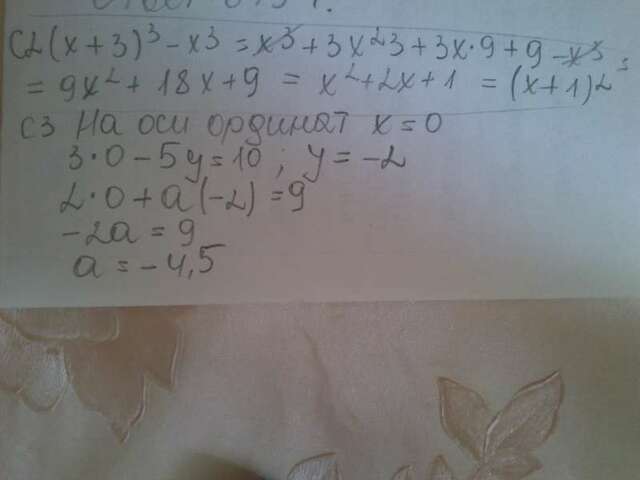 C2 (x+3)³-x3=x3+3x²3+3x·9+9-x3=
=9x²+18x+9=x²+2x+1=(x+1)2
C3 На оси ординат x=0
3·0-5y=10; y=-2
2·0+a(-2)=9
-2a=9
a=-4,5